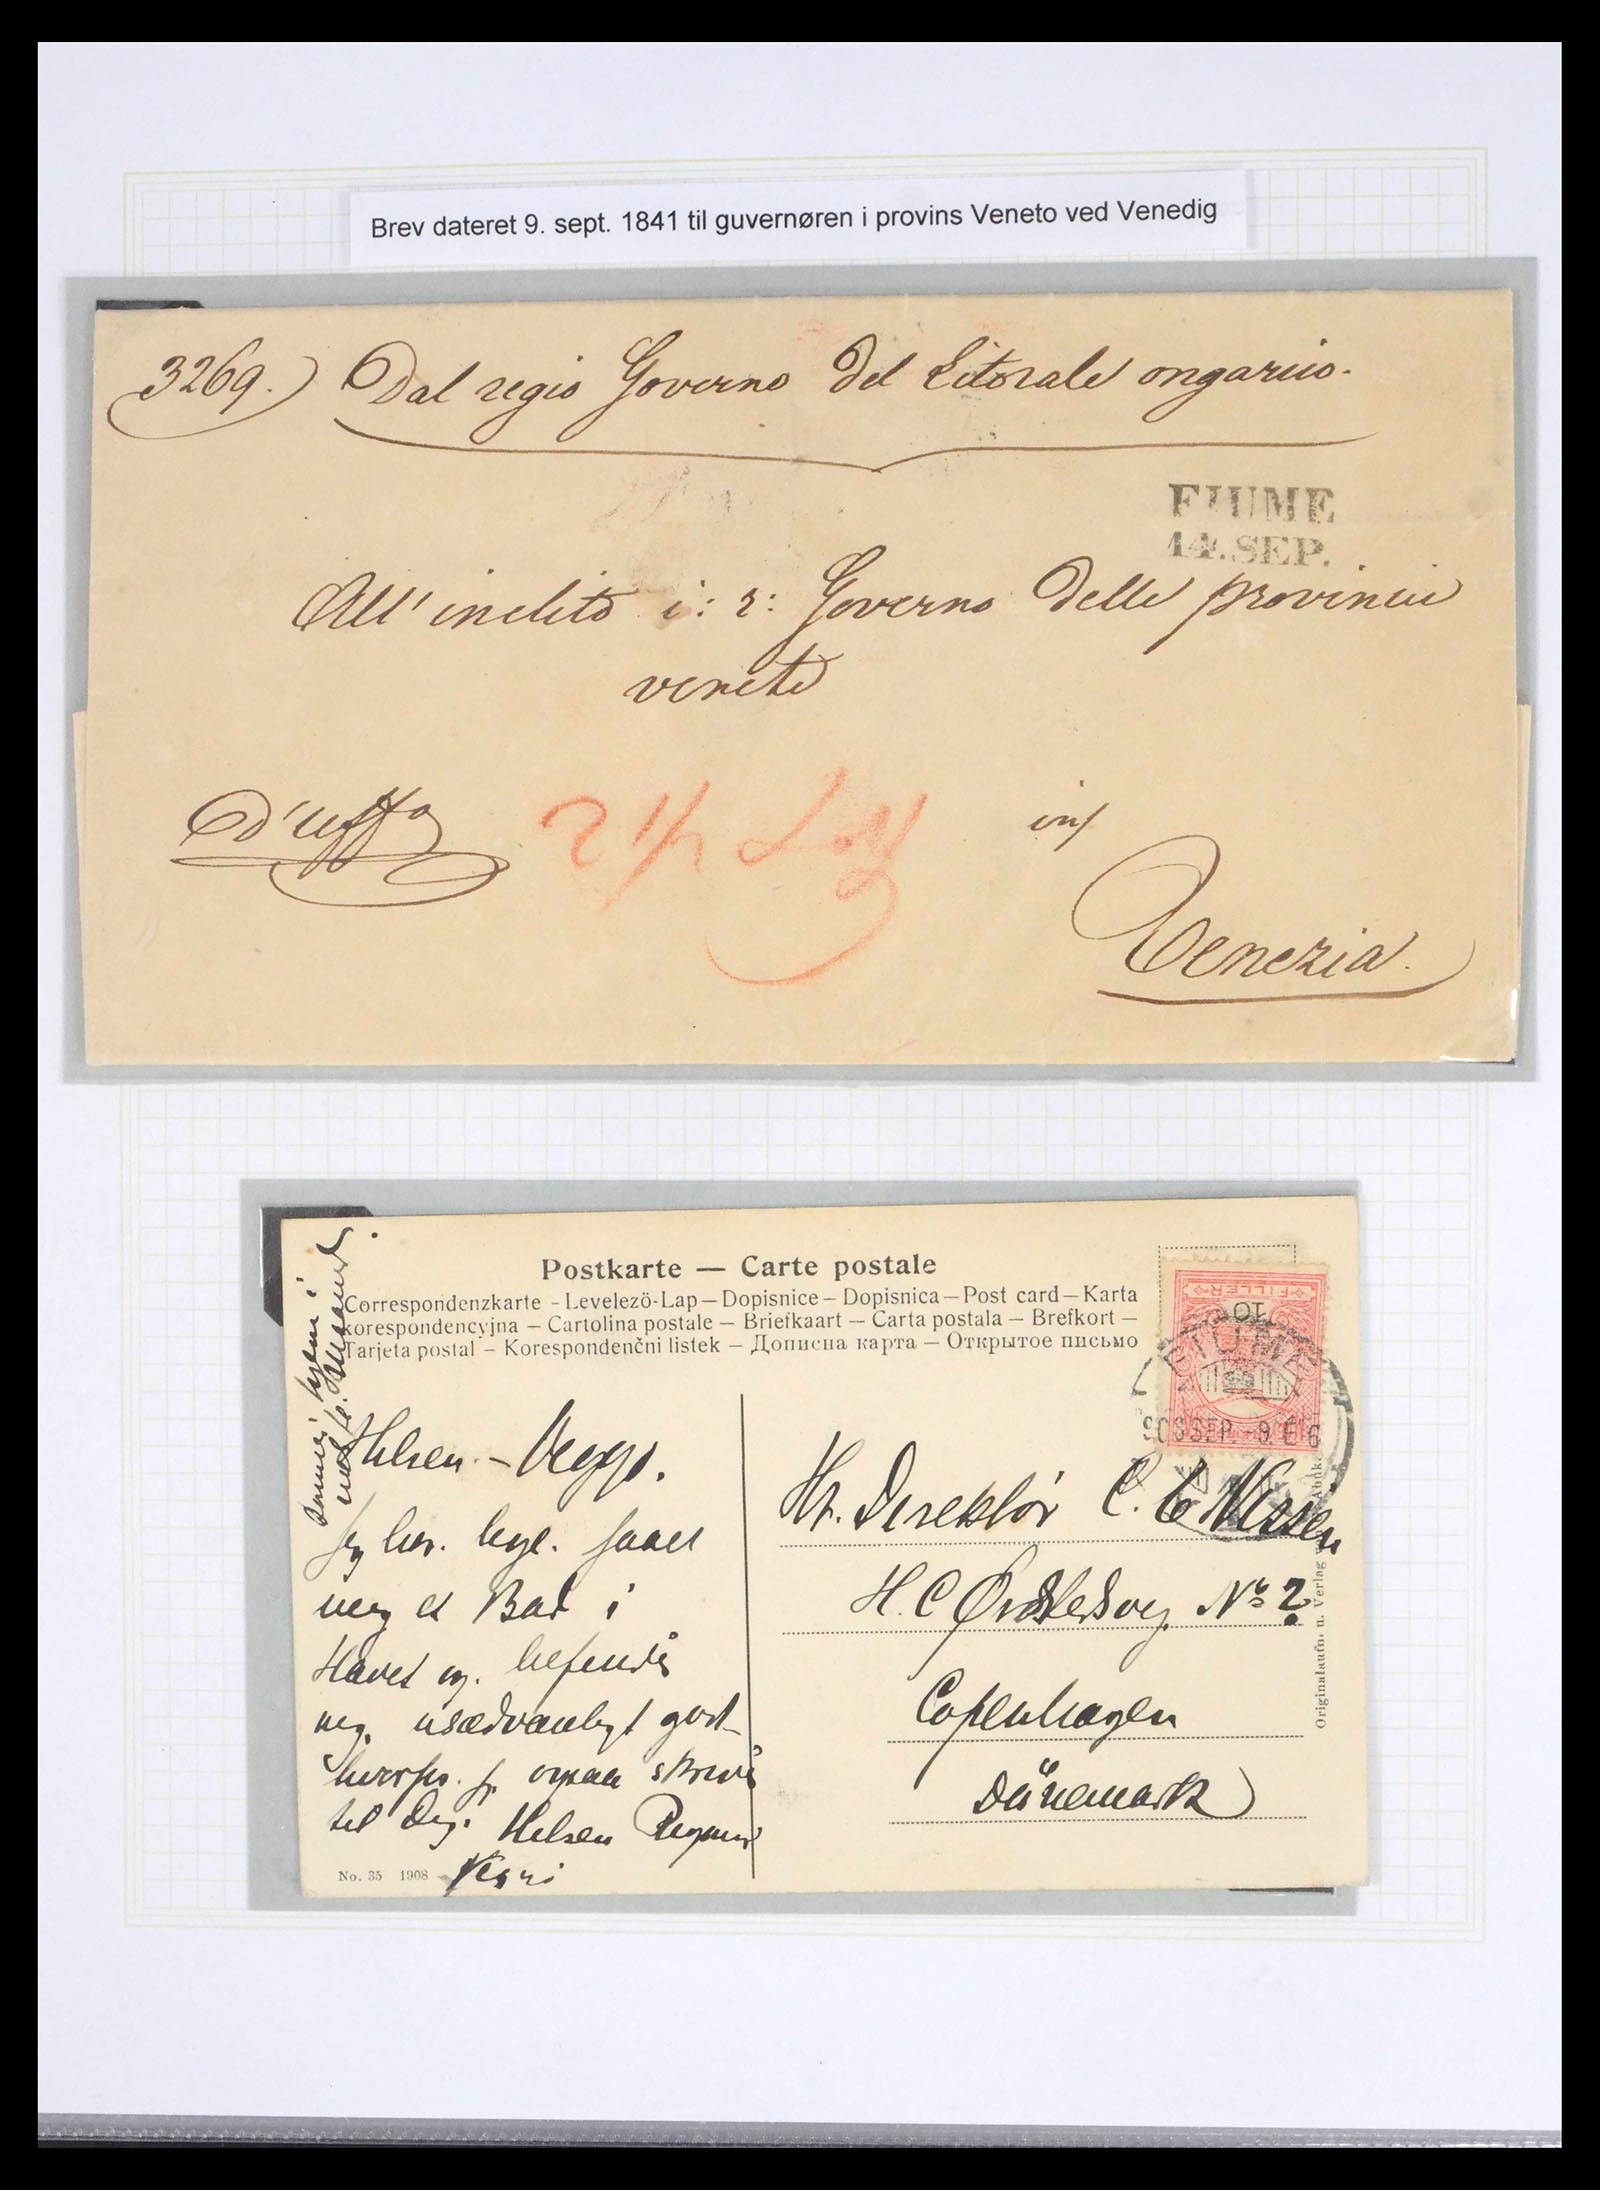 Brev dateret 9. sept. 1841 til guvernøren i provins Veneto ved Venedig
3269.) Dal regio Governo del Litorale ongarico.
FIUME
14. SEP.
All' inclito i: r: Governo delle provincie
venete
D'uffo
2 1/2 Lot
in
Venezia.
Postkarte — Carte postale
Correspondenzkarte - Levelező-Lap — Dopisnice — Dopisnica — Post card — Karta
korespondencyjna — Cartolina postale — Briefkaart — Carta postala — Brefkort —
Tarjeta postal — Korespondenčni listek — Дописна карта — Открытое письмо
FILLÉR
10
FIUME
908 SEP. -9. É 6
Hr. Direktör C. C.
H. C Ørstedsvej No 2
Copenhagen
Dänemark
Originalaufn. u. Verlag
Jeg har
mig et Bad i
Havet og befinder
mig usædvanligt godt
skrive
til Dig. Hilsen
No. 35 1908